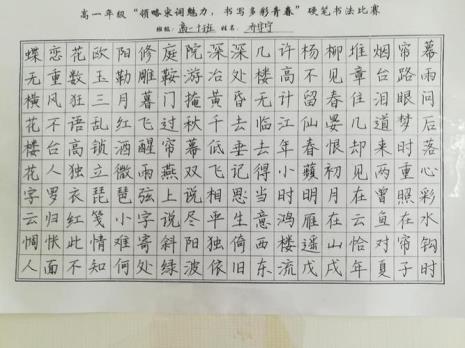 高一年级“领略宋词魅力，书写多彩青春”硬笔书法比赛
班级： 姓名：
蝶恋花欧阳修庭院深深几许杨柳堆烟帘幕
无重数玉勒雕鞍游冶处楼高不见章台路雨
横风狂三月暮门掩黄昏无计留春住泪眼问
花不语乱红飞过秋千去临江仙晏几道梦后
楼台高锁酒醒帘幕低垂去年春恨却来时落
花人独立微雨燕双飞记得小蘋初见两重心
字罗衣琵琶弦上说相思当时明月在曾照彩
云归红笺小字说尽平生意鸿雁在云鱼在水
惆怅此情难寄斜阳独倚西楼遥山恰对帘钩
人面不知何处绿波依旧东流戊戌年夏子时